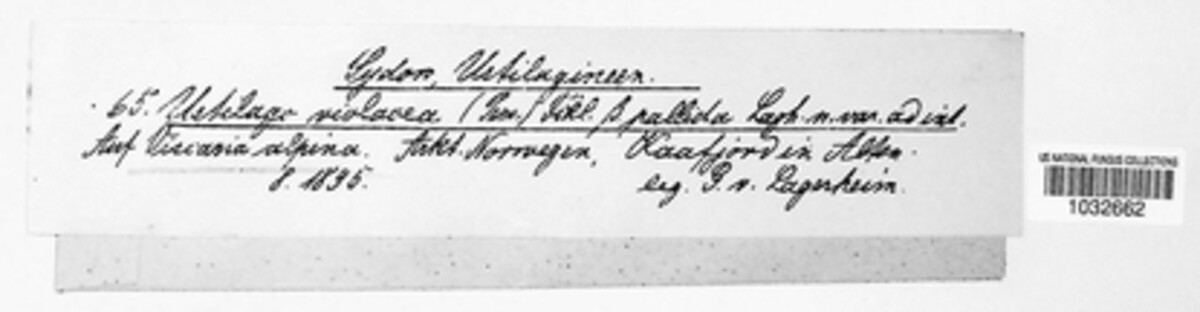 Sydow, Ustilagineen.
65. Ustilago violacea (Pers.) Fckl. β pallida Lagh. n. var. ad int.
Auf Viscaria alpina. Arkt. Norwegen, Kaafjord in Alten.
8. 1895. leg. G. v. Lagerheim.
US NATIONAL FUNGUS COLLECTIONS
1032662